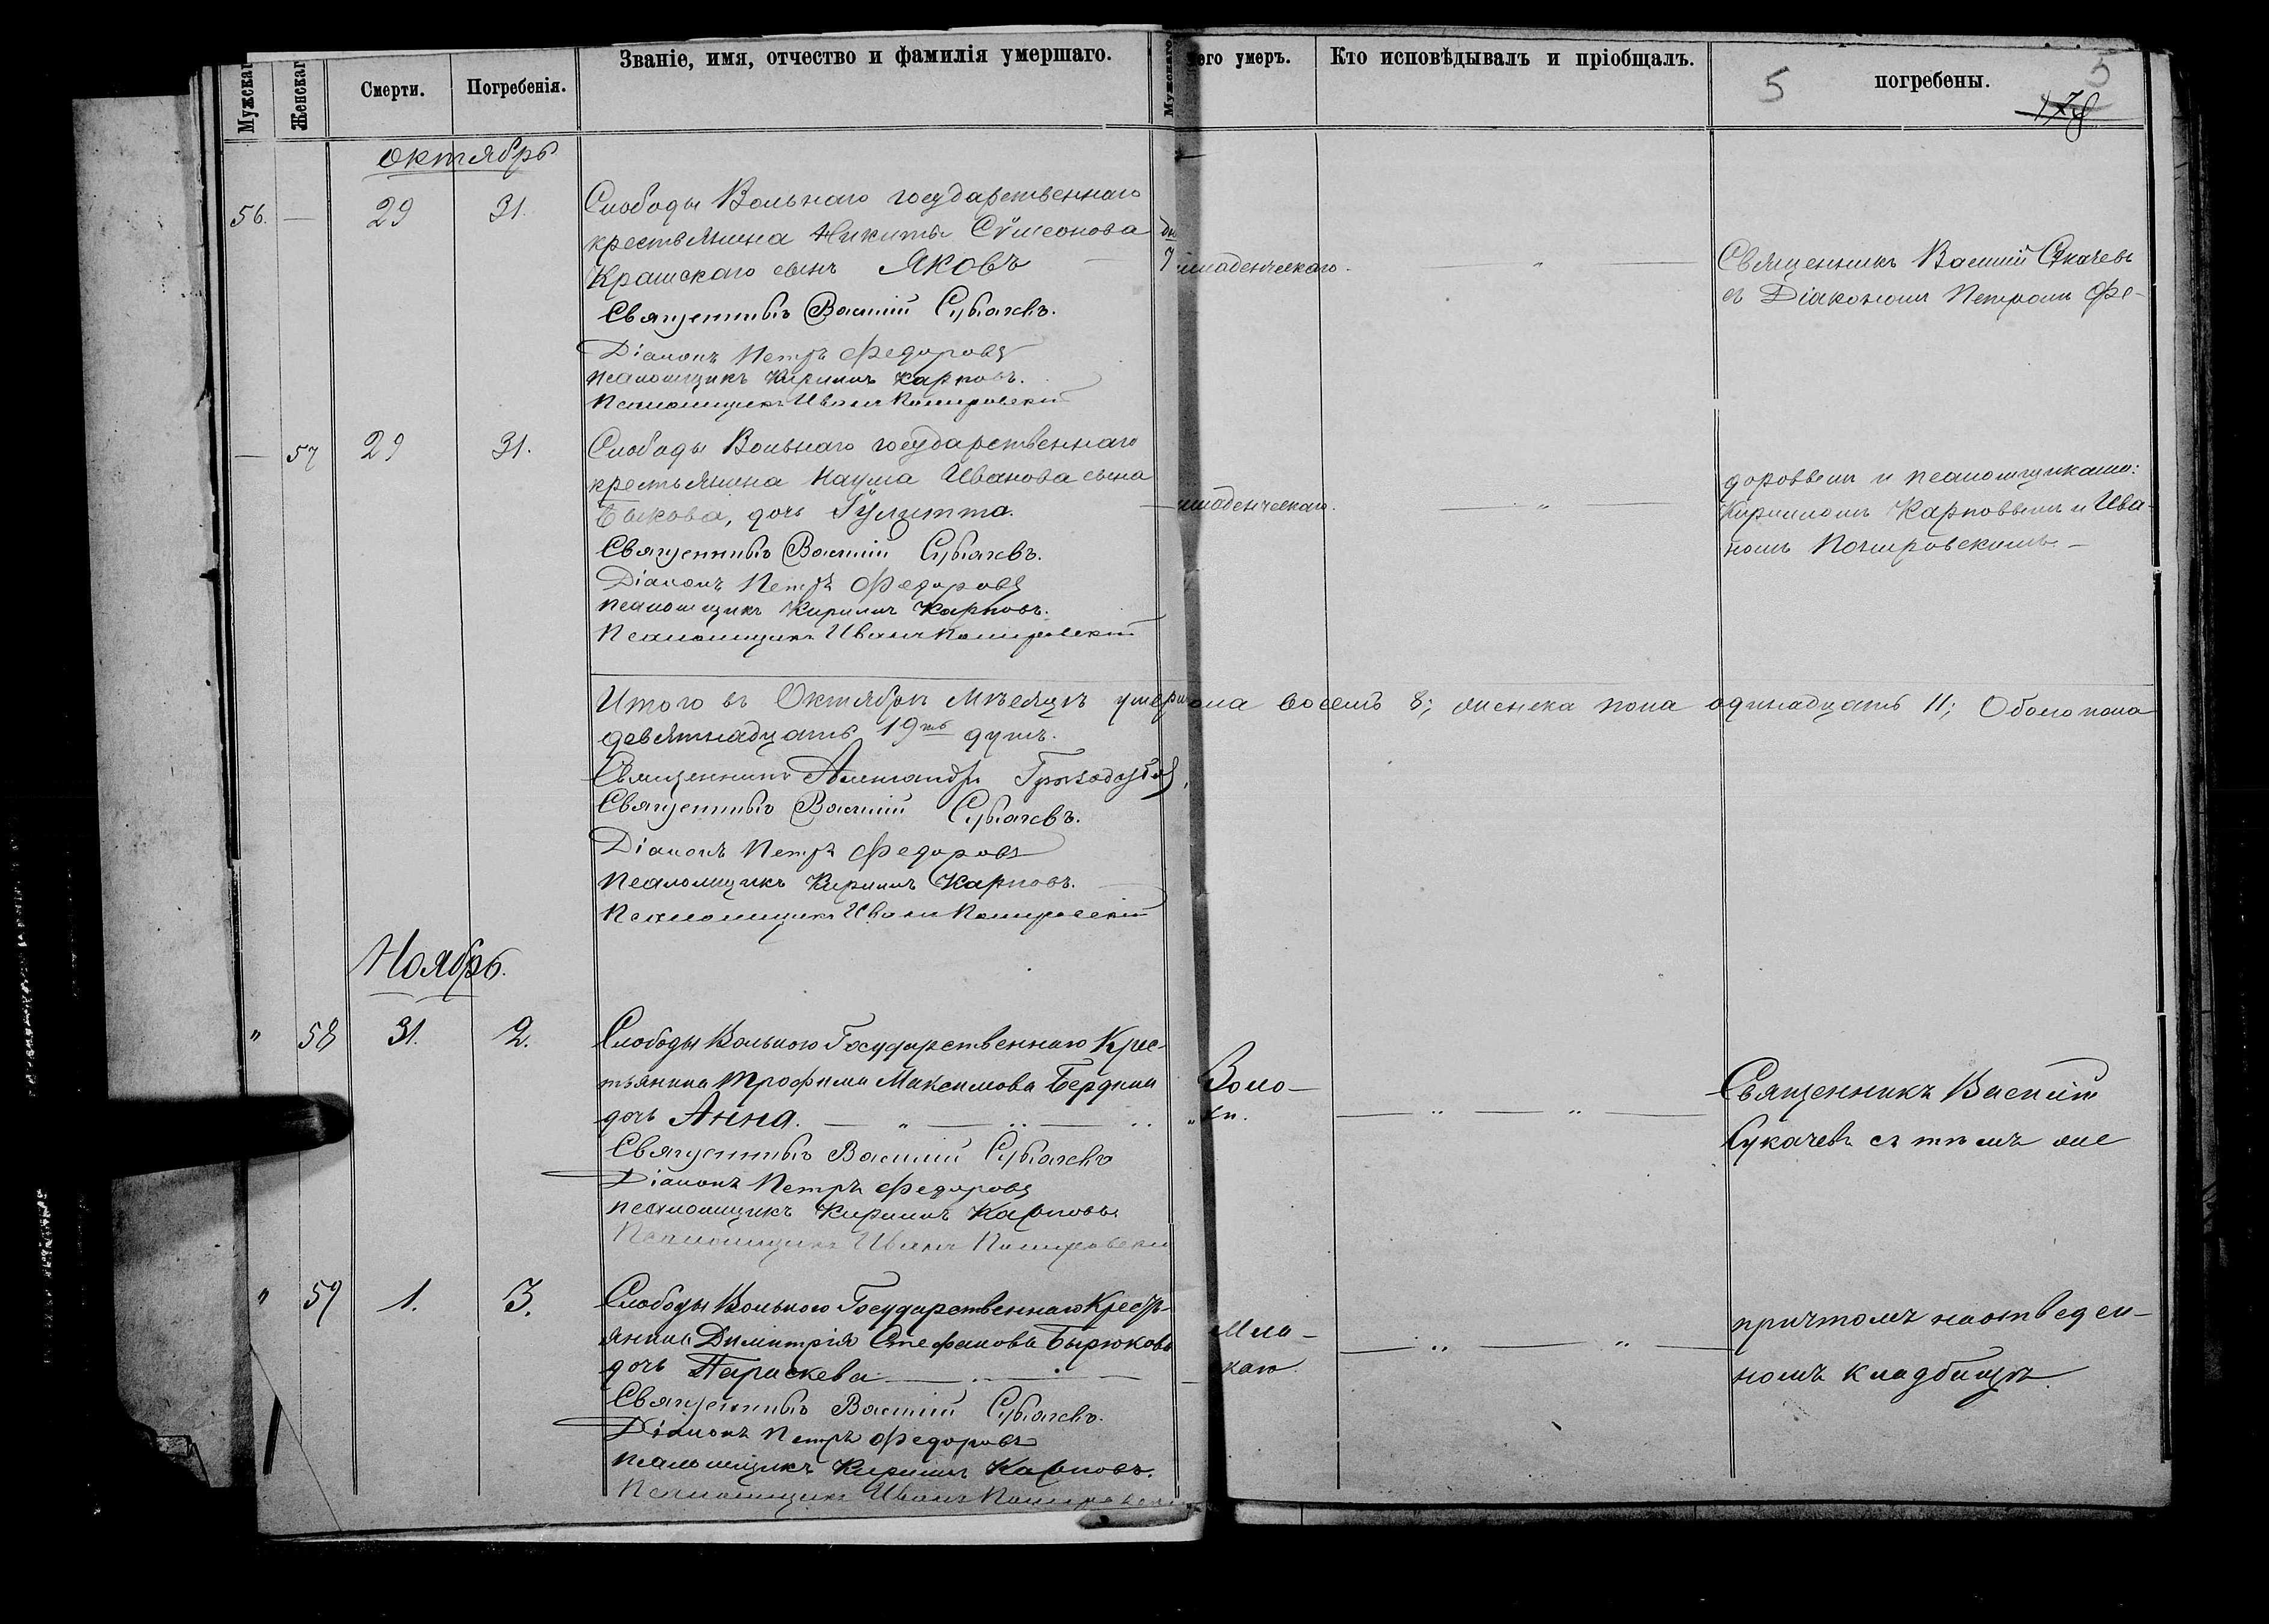 Мужскаг
Женскаг
Смерти.
Погребенія.
Званіе, имя, отчество и фамилія умершаго.
Мужскаго
чего умеръ.
Кто исповѣдывалъ и пріобщалъ.
погребены.
5
5
178
октябрь
56. — 29 31.
Слободы Вольнаго государственнаго
крестьянина Никиты Сѵмеонова
Крамскаго сынъ Яковъ —
7 младенческаго. — „ —
Священникъ Василій Сукачевъ
съ Діакономъ Петромъ Фе-
Священникъ Василій Сукачевъ.
Діаконъ Петръ Федоровъ
псаломщикъ Кириллъ Карповъ.
Псаломщикъ Иванъ
— 57 29 31.
Слободы Вольнаго государственнаго
крестьянина Наума Иванова сына
Быкова, дочь Іулитта.
— младенческаго. — „ —
доровымъ и псаломщиками:
Кирилломъ Карповымъ и Ива-
номъ
Священникъ Василій Сукачевъ.
Діаконъ Петръ Федоровъ
псаломщикъ Кириллъ Карповъ.
Псаломщикъ Иванъ
Итого въ Октябрѣ мѣсяцѣ умерш пола восемь 8; женска пола одинадцать 11; Обоего пола
девятнадцать 19ть душъ.
Священникъ Александръ
Священникъ Василій Сукачевъ.
Діаконъ Петръ Федоровъ
псаломщикъ Кириллъ Карповъ.
Псаломщикъ Иванъ
Ноябрь.
„ 58 31. 2.
Слободы Вольного Государственнаго Крес-
тьянина Трофима Максимова Бердина
дочь Анна. — „ — .. — ..
Священникъ Василій
Сукачевъ съ тѣмъ же
Священникъ Василій Сукачевъ
Діаконъ Петръ Федоровъ
псаломщикъ Кириллъ Карповъ.
Псаломщикъ Иванъ
„ 59 1. 3.
Слободы Вольного Государственнаго Кресть-
янина Димитрія Стефанова Бырюкова
дочь Параскева —
причтомъ на отведен-
номъ кладбищѣ.
Священникъ Василій Сукачевъ.
Діаконъ Петръ Федоровъ
псаломщикъ Кириллъ Карповъ.
Псаломщикъ Иванъ